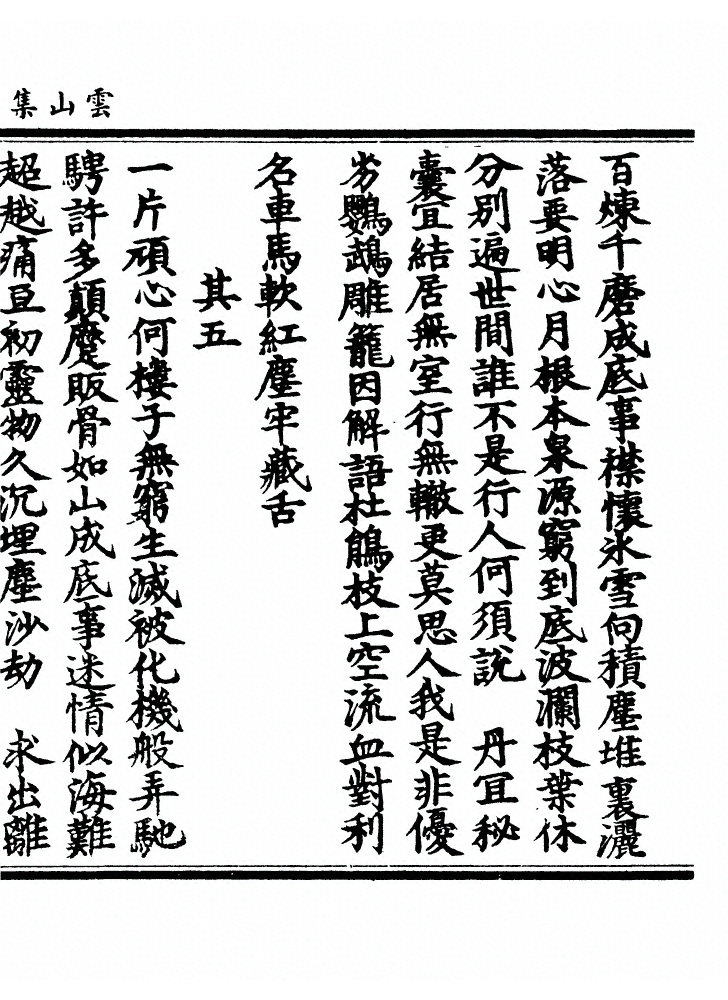 雲山集
百煉千磨成底事襟懷氷雪向積塵堆裏灑
落要明心月根本泉源窮到底波瀾枝葉休
分別遍世間誰不是行人何須說　丹宜秘
囊宜結居無室行無轍更莫思人我是非優
劣鸚鵡雕籠因解語杜鵑枝上空流血對利
名車馬軟紅塵牢藏舌
其五
一片頑心何棲子無窮生滅被化機般弄馳
騁許多顛蹙販骨如山成底事迷情似海難
超越痛亘初靈物久沉埋塵沙劫　求出離